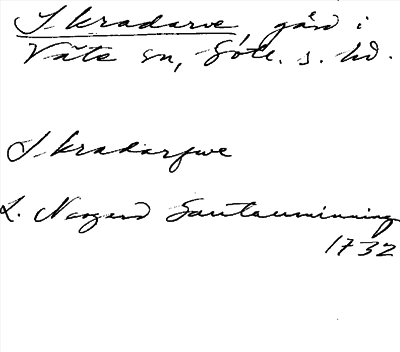 Skradarve, gård i
Väte sn, Gotl. s. hd.
Skradarfwe
L. Noogerd Santaminning
1732